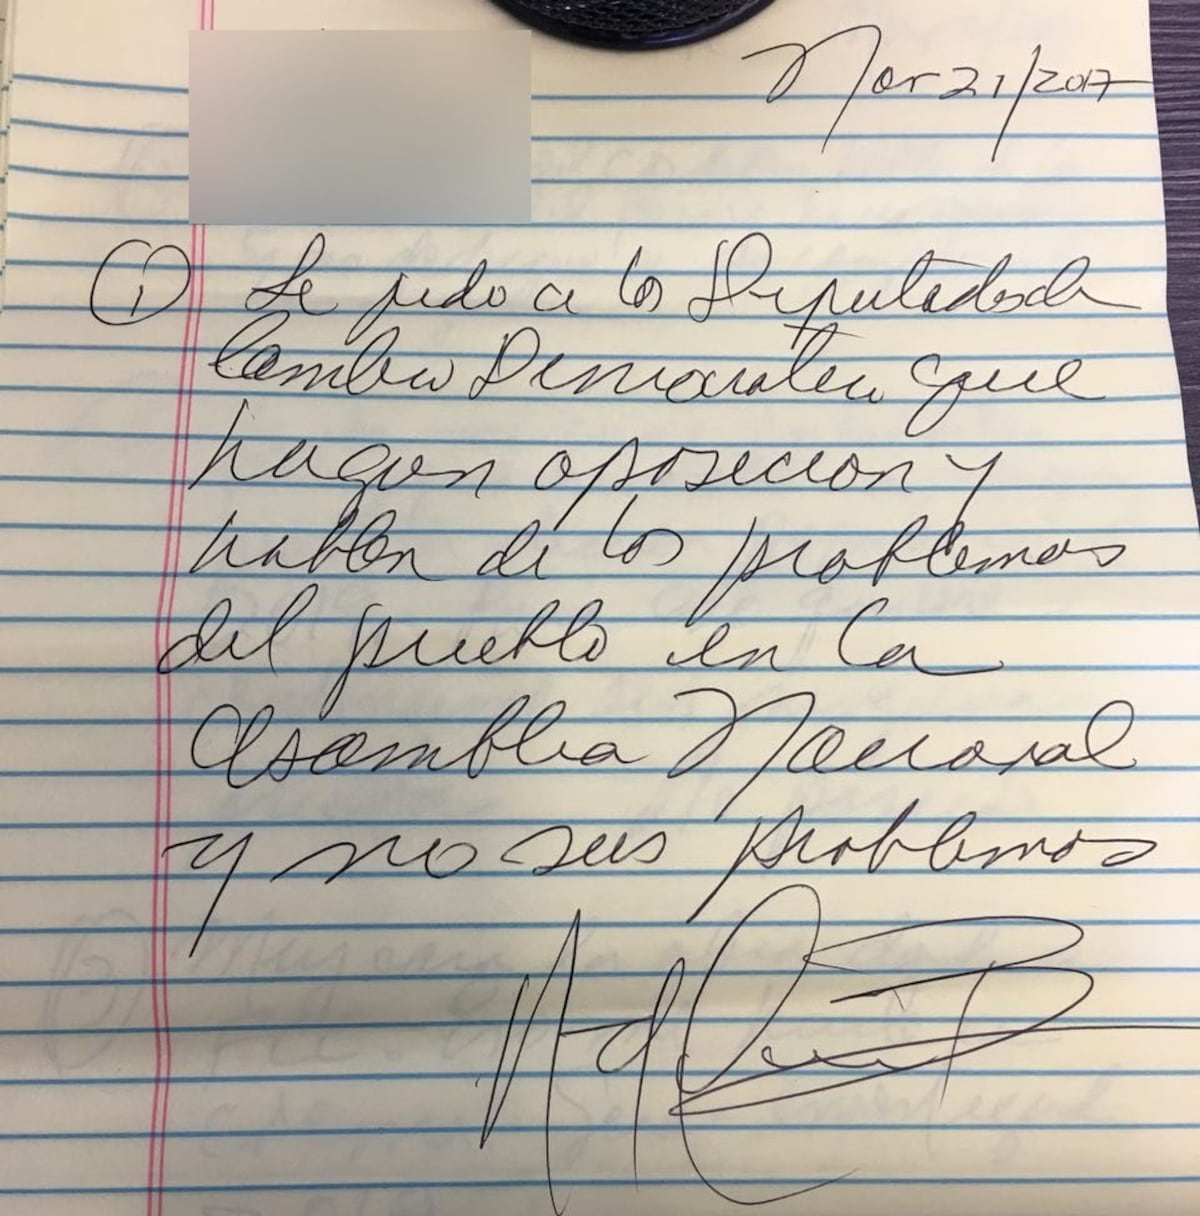 Mar 21/2017
① Le pido a los Diputados de
Cambio Democratico que
hagan oposicion y
hablen de los problemas
del pueblo en la
Asamblea Nacional
y no sus problemas